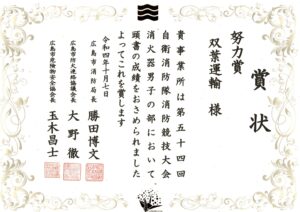 賞状
努力賞
双葉運輸 様
貴事業所は第五十四回
自衛消防隊消防競技大会
消火器男子の部において
頭書の成績をおさめられました
よってこれを賞します
令和四年十月七日
広島市消防局長 勝田博文
広島市防火連絡協議会長 大野徹
広島市危険物安全協会長 玉木昌士